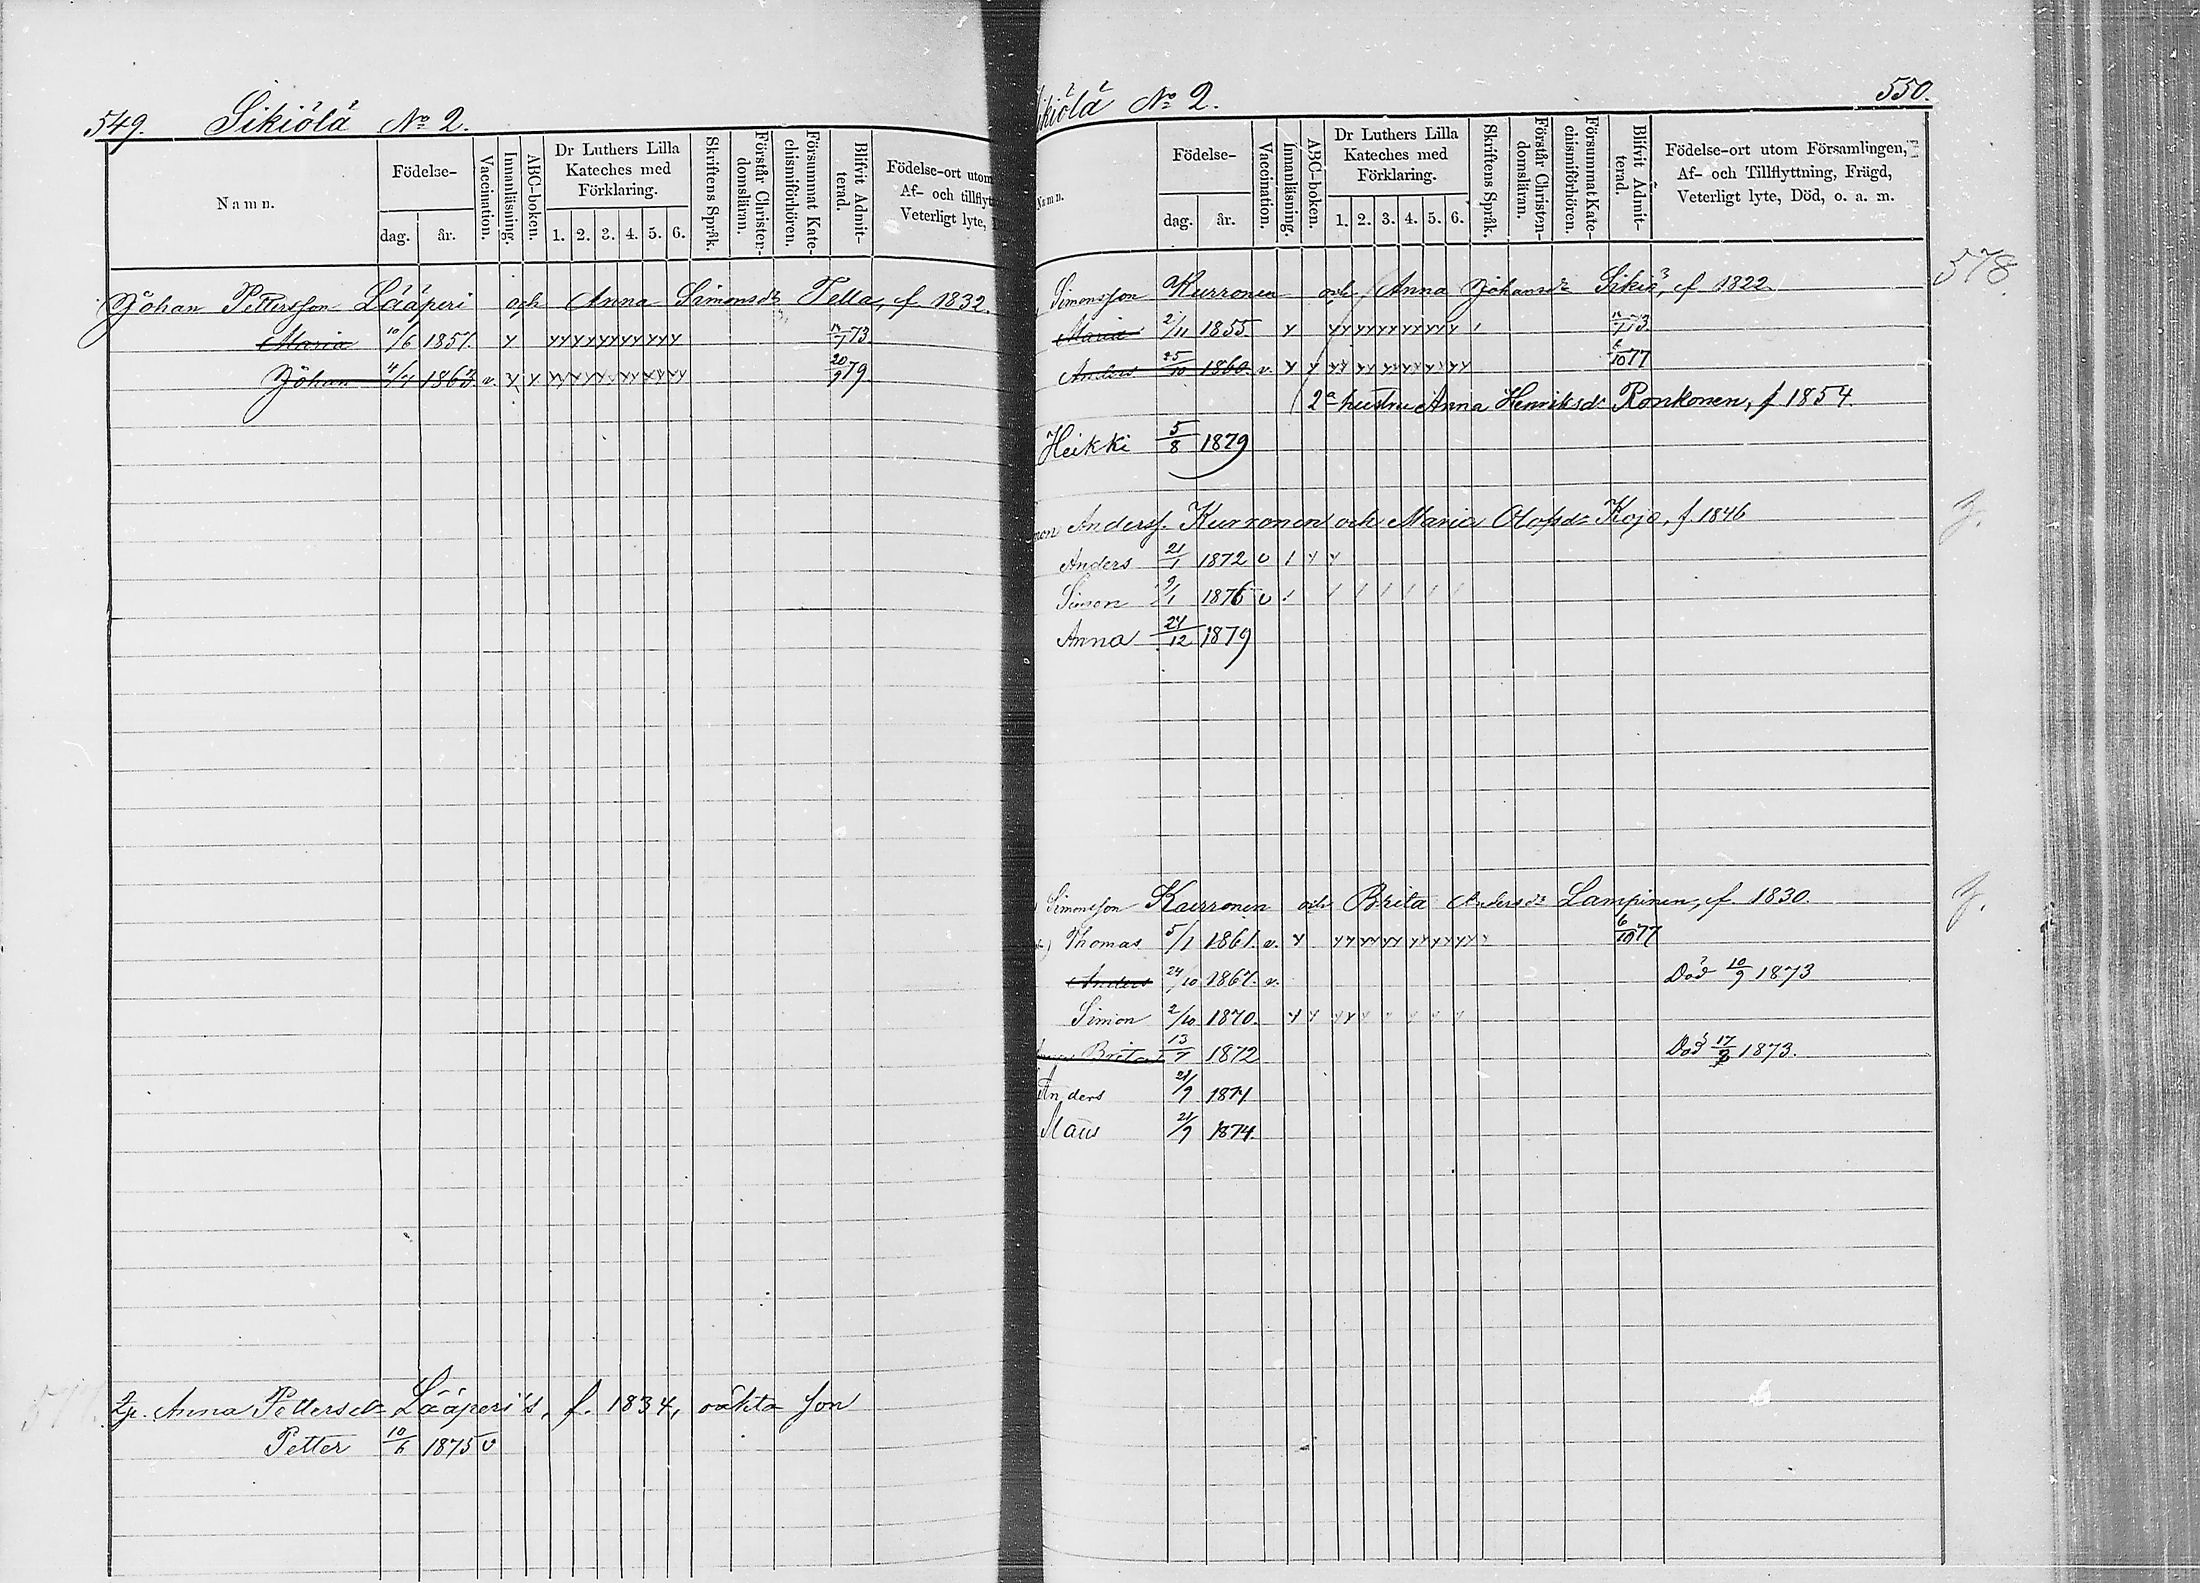 549. Sikiölä No 2.
Namn.
Födelse-
dag. år.
Vaccination.
Innanläsning.
ABC-boken.
Dr Luthers Lilla
Kateches med
Förklaring.
1. 2. 3. 4. 5. 6.
Skriftens Språk.
Förstår Christen-
domsläran.
Försummat Kate-
chismiförhören.
Blifvit Admit-
terad.
Födelse-ort utom
Af- och tillflyt
Veterligt lyte,
Johan Pettersson Lääperi och Anna Simonsdr Tella, f. 1832.
Maria 10/6 1857. 73.
Johan 1863 v. 20/9 79.
Zp. Anna Pettersdr Lääperi's, f. 1834, oäkta son
Petter 10/6 1875 v
ikiölä No 2. 550.
Namn.
Födelse-
dag. år.
Vaccination.
Innanläsning.
ABC-boken.
Dr Luthers Lilla
Kateches med
Förklaring.
1. 2. 3. 4. 5. 6.
Skriftens Språk.
Förstår Christen-
domsläran.
Försummat Kate-
chismiförhören.
Blifvit Admit-
terad.
Födelse-ort utom Församlingen,
Af- och Tillflyttning, Frägd,
Veterligt lyte, Död, o. a. m.
578
Simonsson Kurronen och Anna Johansdr Sikiä, f. 1822.
Maria 2/11 1855. 73.
Anders 25/10 1860. v. 6/10 77
2a hustru Anna Henriksdr Ronkonen, f 1854.
Heikki 5/8 1879
Anderss. Kurronen och Maria Olofsdr Kojo, f 1846
Anders 21/1 1872 v
Simon 9/1 1876 v
Anna 24/12 1879
Simonsson Kurronen och Brita Andersdr Lampinen, f. 1830.
Thomas 5/1 1861. v. 6/10 77
Anders 24/10 1867. v. Död 10/9 1873
Simon 2/10 1870.
Brita 13/7 1872 Död 17/8 1873.
Anders 21/9 1874
Maus 21/9 1874.